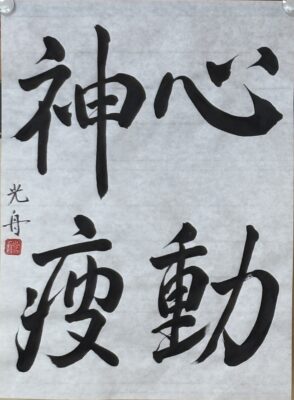 心動
神疲
光舟